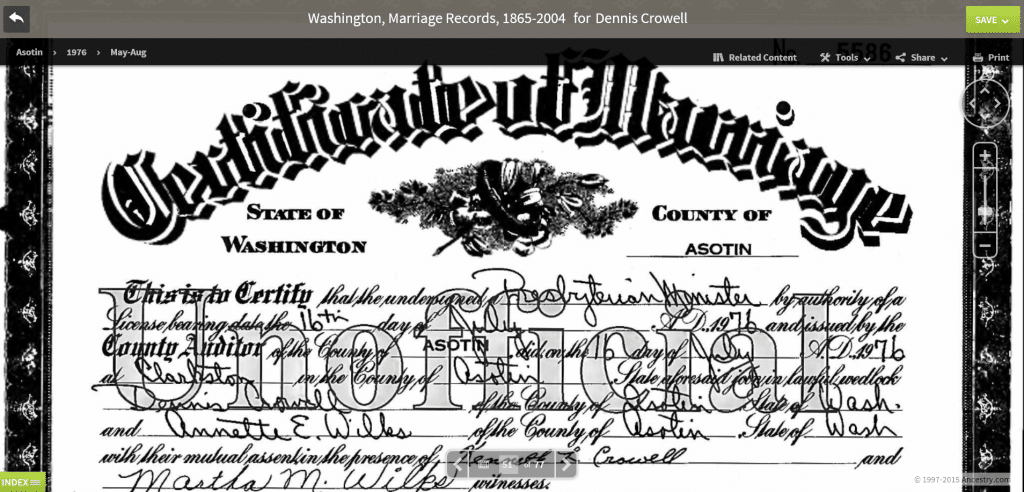 Washington, Marriage Records, 1865-2004 for Dennis Crowell
SAVE
Asotin > 1976 > May-Aug
Related Content Tools Share Print
No. 5586
Certificate of Marriage
STATE OF WASHINGTON
COUNTY OF ASOTIN
This is to Certify that the undersigned a Presbyterian Minister by authority of a
License bearing date the 16th day of July A.D. 1976 and issued by the
County Auditor of the County of ASOTIN did on the 16 day of July A.D. 1976
at Clarkston in the County of Asotin State aforesaid join in lawful wedlock
Dennis Crowell of the County of Asotin State of Wash.
and Annette E. Wilks of the County of Asotin State of Wash
with their mutual assent in the presence of Crowell and
Martha M. Wilks witnesses.
Unofficial
61 of 77
INDEX
© 1997-2015 Ancestry.com